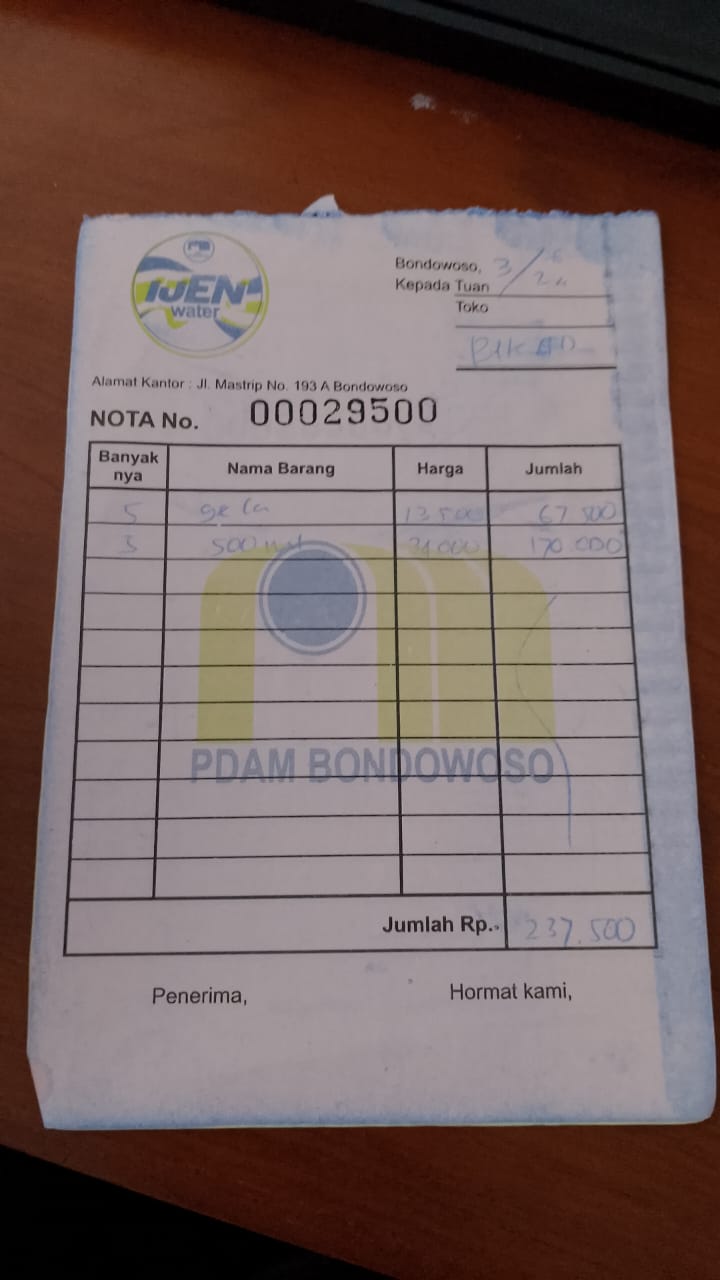 IJEN
water
Bondowoso, 3/6
Kepada Tuan 24
Toko
Alamat Kantor : Jl. Mastrip No. 193 A Bondowoso
NOTA No. 00029500
Banyak nya Nama Barang Harga Jumlah
5 gela 13.500 67.500
5 500 ml 34.000 170.000
PDAM BONDOWOSO
Jumlah Rp.- 237.500
Penerima, Hormat kami,